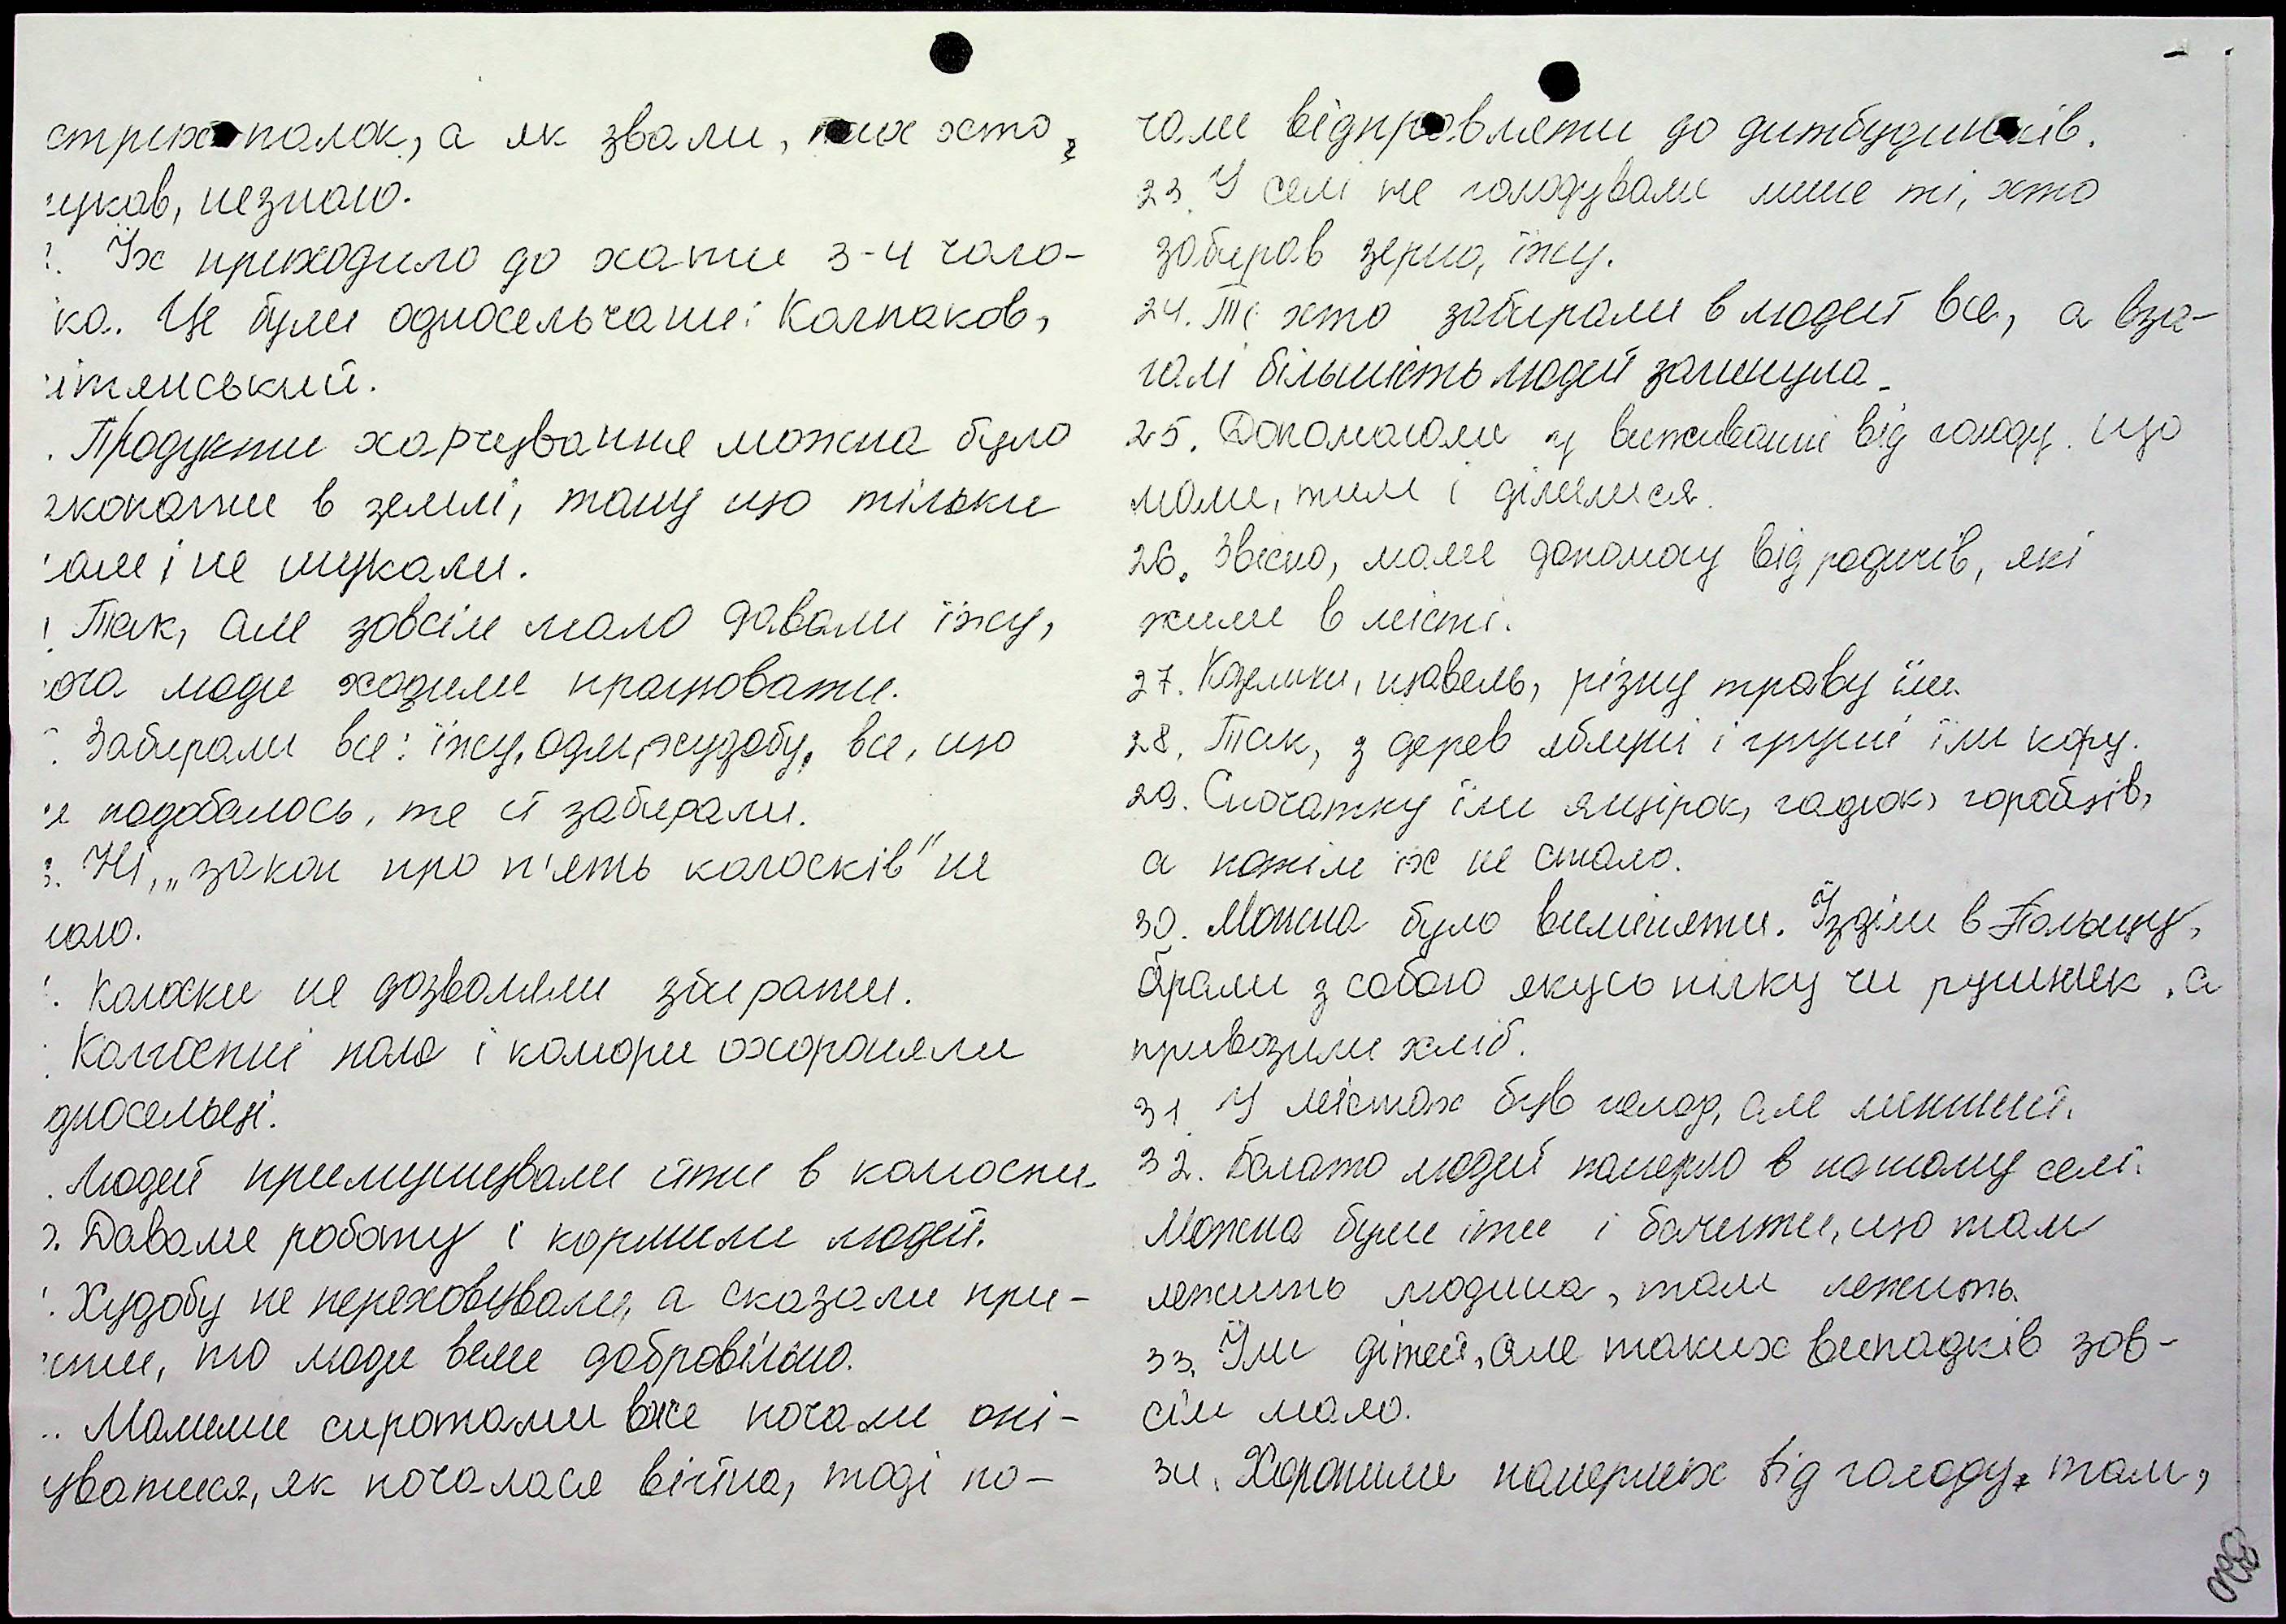 стрих палок, а як звали, тих хто
шукав, незнаю.
Їх приходило до хати 3-4 чоло-
іка. Це були односельчани: Колпаков,
ітянський.
Продукти харчування можна було
закопати в землі, тому що тільки
там і не шукали.
Так, але зовсім мало давали їжу,
хоча люди ходили працювати.
Забирали все: їжу, одяг, худобу, все, що
подобалось, те й забирали.
3. Ні, „закон про п'ять колосків" не
знаю.
Колоски не дозволяли збирати.
Колгоспні поля і комори охороняли
односельці.
Людей примушували йти в колгоспи.
Давали роботу і кормили людей.
Худобу не переховували, а сказали при-
вести, то люди вели добровільно.
Малими сиротами вже почали опі-
куватися, як почалася війна, тоді по-
чали відправляти до дитбудинків.
23. У селі не голодували лише ті, хто
забирав зерно, їжу.
24. Ті хто забирали в людей все, а вза-
галі більшість людей загинула.
25. Допомагали у виживанні від голоду. що
мали, тим і ділилися.
26. Звісно, мали допомогу від родичів, які
жили в місті.
27. Козельки, щавель, різну траву їли.
28. Так, з дерев яблуні і груші їли кору.
29. Спочатку їли ящірок, гадюк, горобців,
а потім їх не стало.
30. Можна було виміняти. Їздили в Польщу,
брали з собою якусь пілку чи рушник, а
привозили хліб.
31. У містах був голод, але менший.
32. Багато людей померло в нашому селі.
Можна були іти і бачити, що там
лежить людина, там лежить.
33. Їли дітей, але таких випадків зов-
сім мало.
34. Хоронили померлих від голоду там,